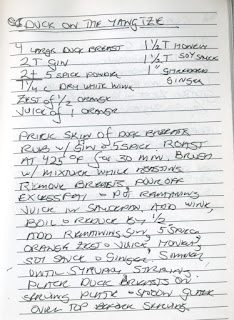 DUCK ON THE YANGTZE
4 LARGE DUCK BREAST 1 1/2 T HONEY
2 T GIN 1 1/2 T SOY SAUCE
2 t 5 SPICE POWDER 1" SHREDDED
1/4 C DRY WHITE WINE GINGER
ZEST OF 1/2 ORANGE
JUICE OF 1 ORANGE
PRICK SKIN OF DUCK BREASTS
RUB W/ GIN & 5 SPICE ROAST
AT 425° FOR 30 MIN. BRUSH
W/ MIXTURE WHILE ROASTING
REMOVE BREASTS, POUR OFF
EXCESS FAT & PUT REMAINING
JUICE IN SAUCEPAN ADD WINE,
BOIL & REDUCE BY 1/2
ADD REMAINING GIN, 5 SPICE,
ORANGE ZEST & JUICE, HONEY,
SOY SAUCE & GINGER. SIMMER
UNTIL SYRUPY, STIRRING.
PLACE DUCK BREASTS ON
SERVING PLATE & SPOON GLAZE
OVER TOP BEFORE SERVING